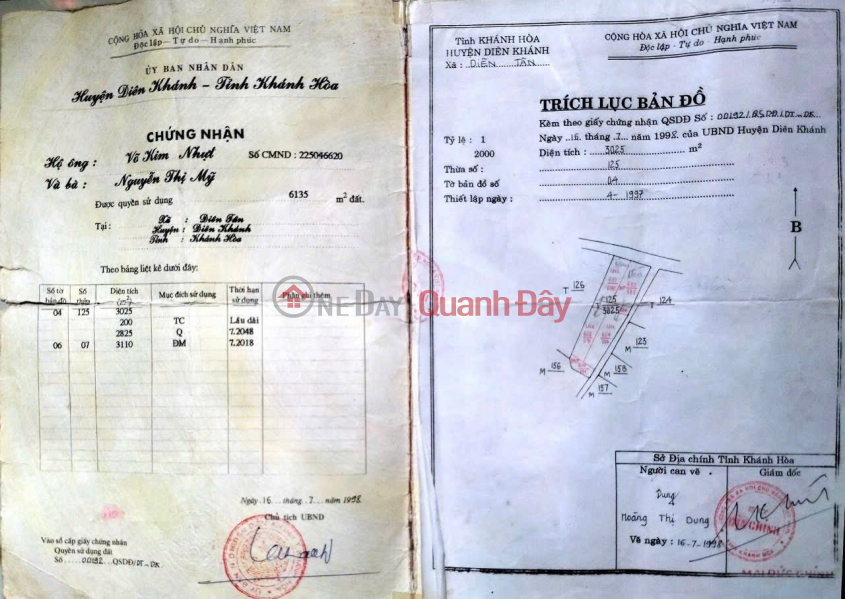 CỘNG HÒA XÃ HỘI CHỦ NGHĨA VIỆT NAM
Độc lập - Tự do - Hạnh phúc
ỦY BAN NHÂN DÂN
Huyện Diên Khánh - Tỉnh Khánh Hòa
CHỨNG NHẬN
Hộ ông : Võ Kim Nhựt Số CMND : 225046620
Và bà : Nguyễn Thị Mỹ
Được quyền sử dụng 6135 m² đất.
Tại : Xã : Diên Tân
Huyện : Diên Khánh
Tỉnh : Khánh Hòa
Theo bảng liệt kê dưới đây:
Số tờ bản đồ Số thửa Diện tích (m²) Mục đích sử dụng Thời hạn sử dụng Phần ghi thêm
04 125 3025
200 TC Lâu dài
2825 Q 7.2048
06 07 3110 ĐM 7.2018
Ngày 16 tháng 7 năm 1998
Chủ tịch UBND
Vào sổ cấp giấy chứng nhận
Quyền sử dụng đất
Số 00192 QSDĐ/DT-DK
ONEDAY Quanh Đây
Tỉnh KHÁNH HÒA
HUYỆN DIÊN KHÁNH
Xã : DIÊN TÂN
CỘNG HÒA XÃ HỘI CHỦ NGHĨA VIỆT NAM
Độc lập - Tự do - Hạnh phúc
TRÍCH LỤC BẢN ĐỒ
Kèm theo giấy chứng nhận QSDĐ Số : 00192/QSDĐ/DT-DK
Ngày 16 tháng 7 năm 1998 của UBND Huyện Diên Khánh
Tỷ lệ : 1
2000
Diện tích : 3025 m²
Thửa số : 125
Tờ bản đồ số 04
Thiết lập ngày : 4-1997
B
T 126
125
3025
T 124
M 123
M 156
M 158
M 157
Sở Địa chính Tỉnh Khánh Hòa
Người can vẽ
Giám đốc
Dung
Hoàng Thị Dung
Vẽ ngày : 16-7-1998
MAI ĐỨC CHÍNH